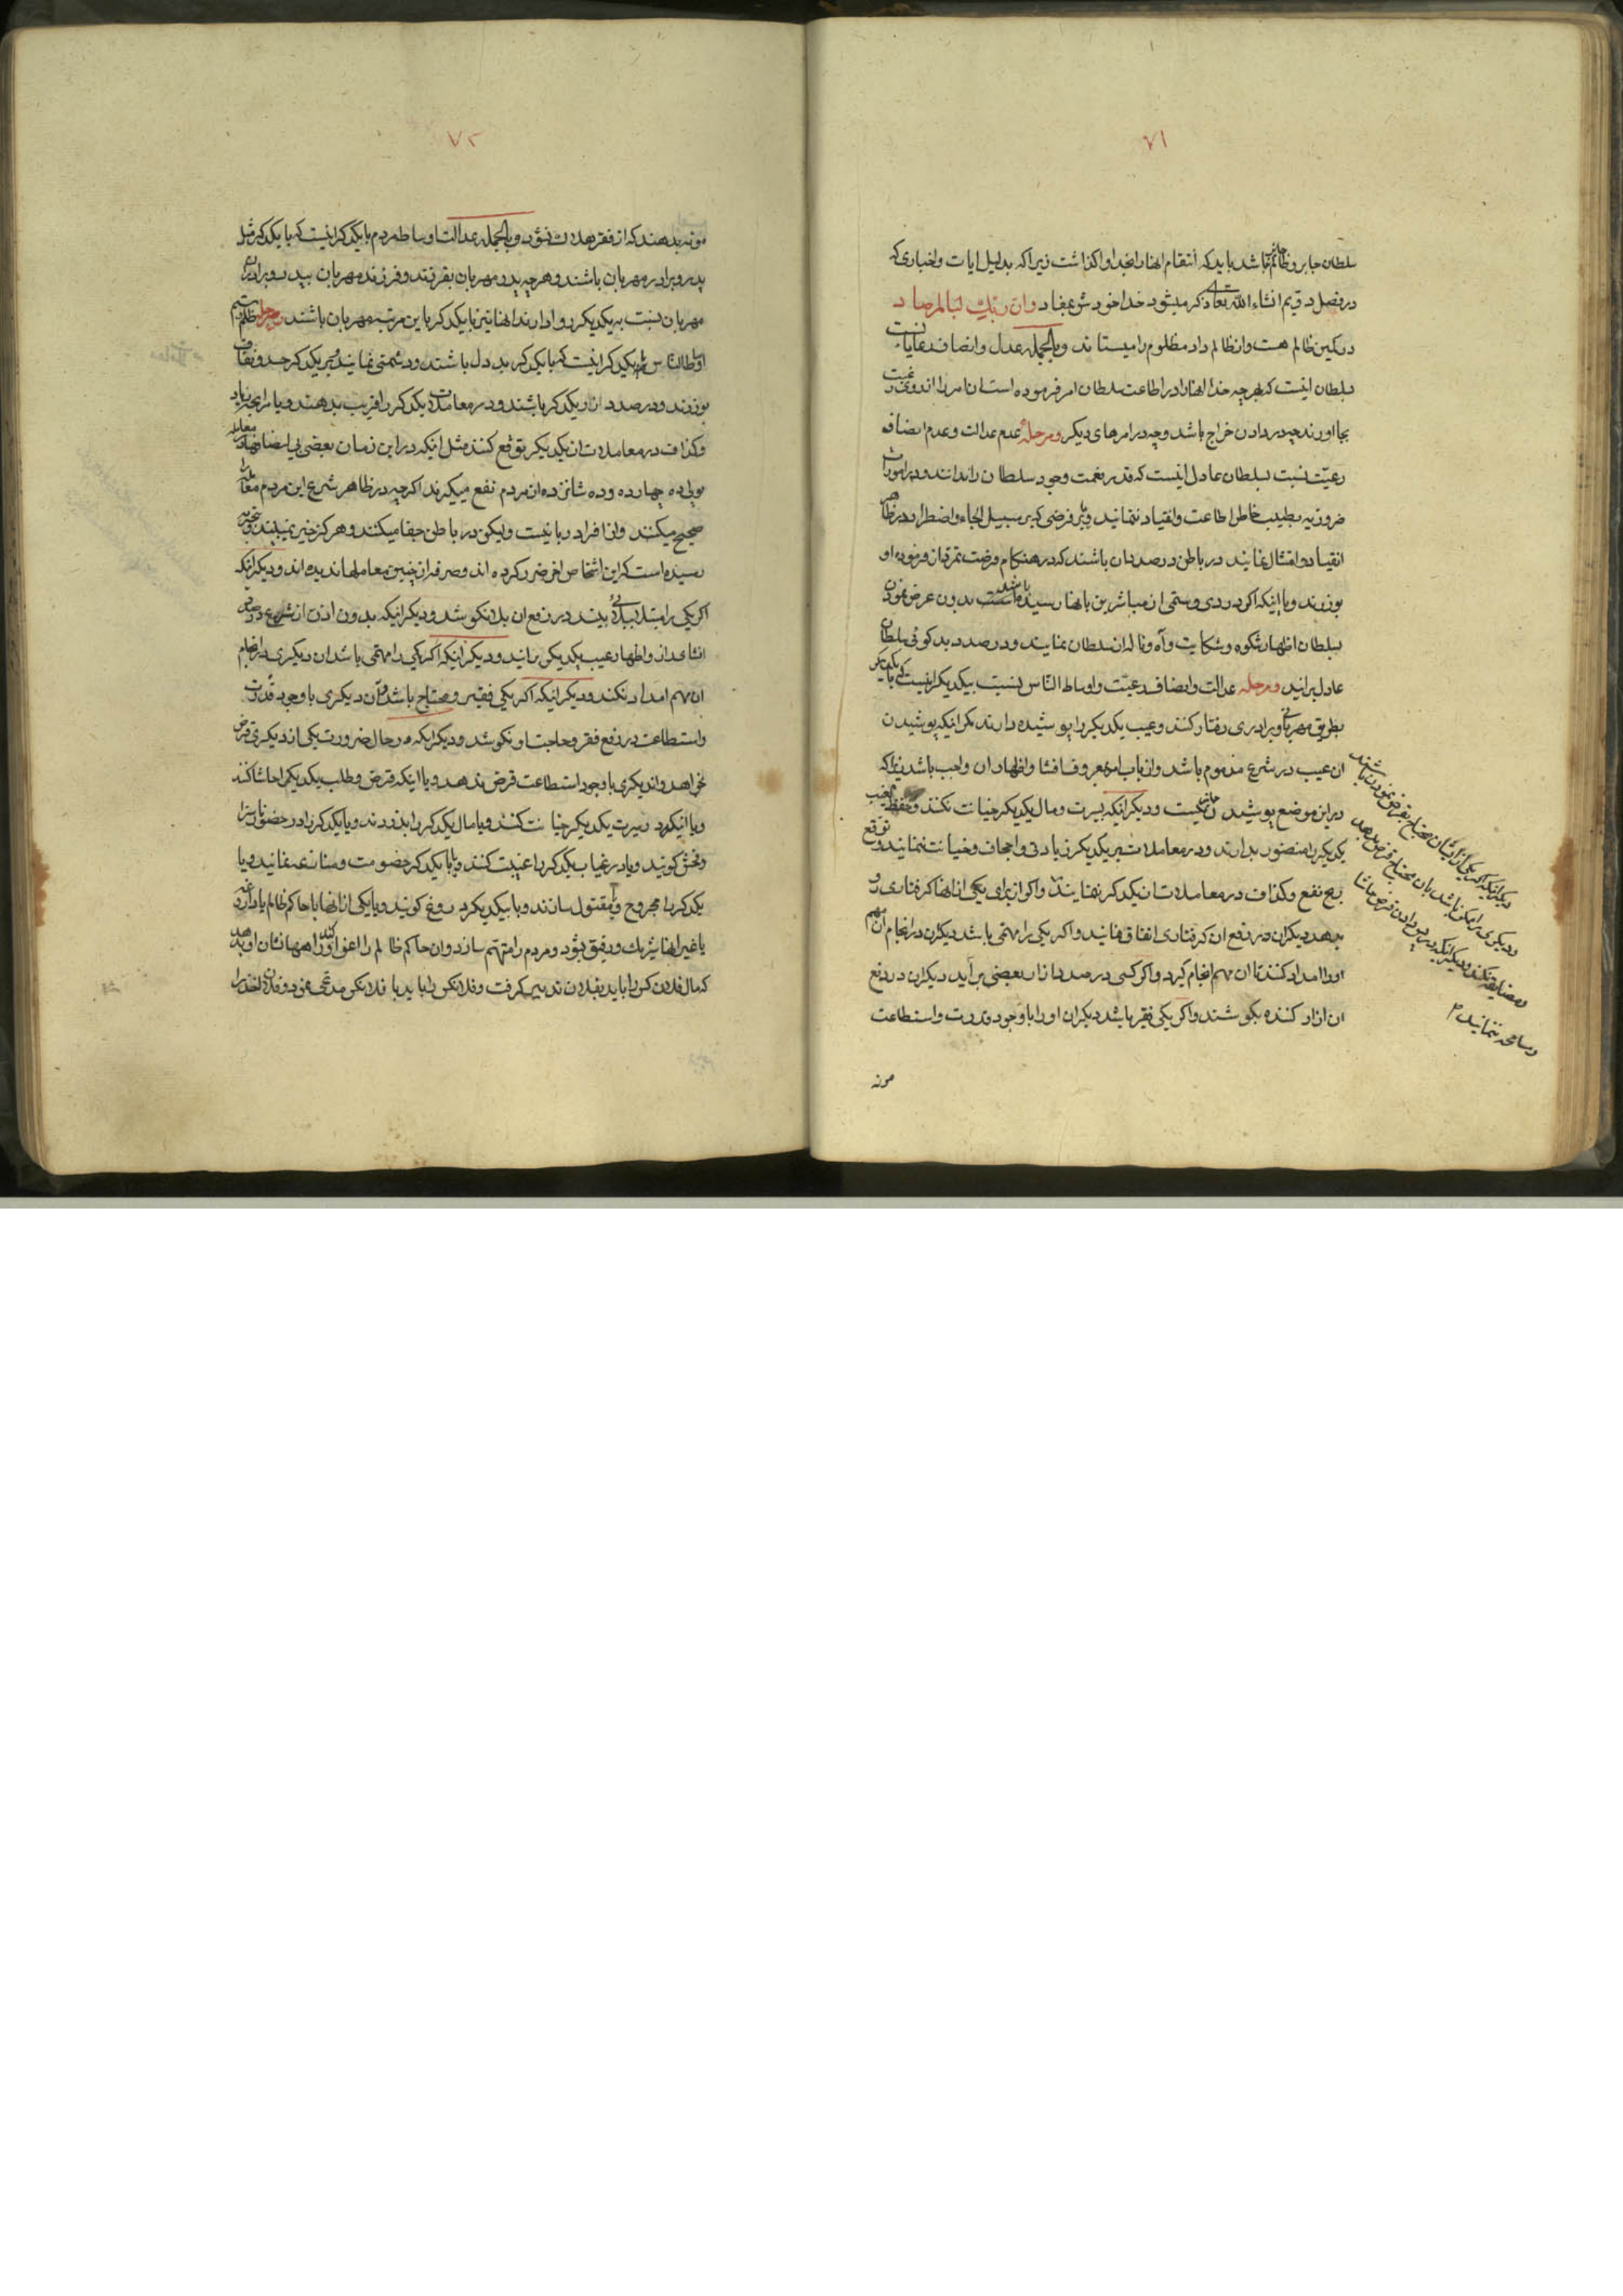 ۷۱
سلطان جابر و ظالم باشد باید که انتقام انها را بخدا واکذاشت زیرا که بدلیل ایات و اخباری که
در فصل دویم انشاء الله تعالی ذکر میشود خدا خودش میفرماید وان ربک لبالمرصاد
در کمین ظالم هست و از ظالم داد مظلوم را میستاند و بالجمله عدل و انصاف رعایا نسبت
بسلطان اینست که بهرچه خدا انها را در اطاعت سلطان امر فرموده است ان امر را از روی رغبت
بجا اورند چه در دادن خراج باشد و چه در امرهای دیکر و مرحلهٔ عدم عدالت و عدم انصاف
رعیّت نسبت بسلطان عادل اینست که قدر نعمت وجود سلطان را ندانند و در امورات
ضروریه بطیب خاطر اطاعت و انقیاد ننمایند و بر فرضی که بر سبیل الجاء و اضطرار در ظاهر
انقیاد و امتثال نمایند در باطن در صدد ان باشند که در هنکام فرصت تمرد از فرموده او
بورزند و یا اینکه اکر دردی و ستمی از مباشرین بانها رسیده باشد بدون عرض نمودن
بسلطان اظهار شکوه و شکایت و آه و ناله از سلطان نمایند و در صدد بدکوئی سلطان
عادل برایند و مرحله عدالت و انصاف رعیّت و اوساط النّاس نسبت بیکدیکر اینست که با یکدیکر
بطریق مهربانی و برادری رفتار کنند و عیب یکدیکر را پوشیده دارند مکر اینکه پوشیدن
ان عیب در شرع مذموم باشد و از باب امر بمعروف افشا و اظهار ان واجب باشد زیرا که
در این موضع پوشیدن جایز نیست و دیکر اینکه بسیرت و مال یکدیکر خیانت نکنند و حفظ الغیب
یکدیکر را منضور بدارند و در معاملات بر یکدیکر زیادتی و اجحاف و خیانت ننمایند و توقع
ربح نفع و کذاف در معاملات از یکدیکر ننمایند و اکر از برای یکی از انها کرفتاری رو
بدهد دیکران در رفع ان کرفتاری اتفاق نمایند و اکر یکی را مهمّی باشد دیکران در انجام ان مهم
او را امداد کنند تا ان مهم انجام کیرد و اکر کسی در صدد ازار بعضی بر آید دیکران در رفع
ان ازار کننده بکوشند و اکر یکی فقیر باشد دیکران او را با وجود قدرت و استطاعت
مونه
دیکر اینکه اکر یکی از ایشان محتاج بقرض نمودن باشد
و دیکری را ممکن باشد بان محتاج قرض بدهد
و مضایقه نکند و دیکر اینکه در پس دادن قرض حاشا
و مسامحه ننمایند
۷۲
مونه بدهند که از فقر هلاک نشود و بالجمله عدالت اوساط مردم با یکدیکر اینست که با یکدیکر مثل
پدر و برادر مهربان باشند و هرچه پدر مهربان بفرزند و فرزند مهربان بپدر و برادر
مهربان نسبت بیکدیکر روا دارند انها نیز با یکدیکر باین مرتبه مهربان باشند و مرحله ظلم و ستم
اوساط النّاس بر یکدیکر اینست که با یکدیکر بد دل باشند و دشمنی نمایند و بر یکدیکر حسد و نفاق
بورزند و در صدد ازار یکدیکر باشند و در معاملات یکدیکر را فریب بدهند و یا مرابحه زیاد
و کذاف در معاملات از یکدیکر توقع کنند مثل اینکه در این زمان بعضی بی انصافها در معامله
پولی ده چهارده و ده شانزده از مردم نفع میکیرند اکرچه در ظاهر شرع این مردم معامله
صحیح میکنند و از افراد ربا نیست ولیکن در باطن جفا میکنند و هرکز خیر نمیبینند و بتجربه
رسیده است که این اشخاص اخر ضرر کرده اند و صرفه از چنین معاملها ندیده اند و دیکر انکه
اکر یکی را مبتلا ببلائی بینند در رفع ان بلا نکوشند و دیکر اینکه بدون اذن از شرع در صدد
افشای راز و اظهار عیب یکدیکر برایند و دیکر اینکه اکر یکی را مهمّی باشد ان دیکری در انجام
ان مهم امداد نکند و دیکر اینکه اکر یکی فقیر و محتاج باشد و آن دیکری با وجود قدرت
و استطاعت در رفع فقر و حاجت او نکوشد و دیکر اینکه در حال ضرورت یکی از دیکری قرض
بخواهد و ان دیکری با وجود استطاعت قرض ندهد و یا اینکه قرض و طلب یکدیکر را حاشا کنند
و یا اینکه در سیرت یکدیکر خیانت کنند و یا مال یکدیکر را بدزدند و یا یکدیکر را در حضور ناسزا
و فحش کویند و یا در غیاب یکدیکر را غیبت کنند و یا با یکدیکر خصومت و منازعه نمایند و یا
یکدیکر را مجروح و یا مقتول سازند و یا بیکدیکر دروغ کویند و یا یکی از انها با حاکم ظالم یا داروغه
یا غیر انها شریک و رفیق بشود و مردم را متهم سازد و ان حاکم ظالم را اغوا کند و راهها نشان او بدهد
که مال فلان کس را باید بفلان تدبیر کرفت و فلانکس را باید با فلانکس مدعی نمود و فلان اخذ را